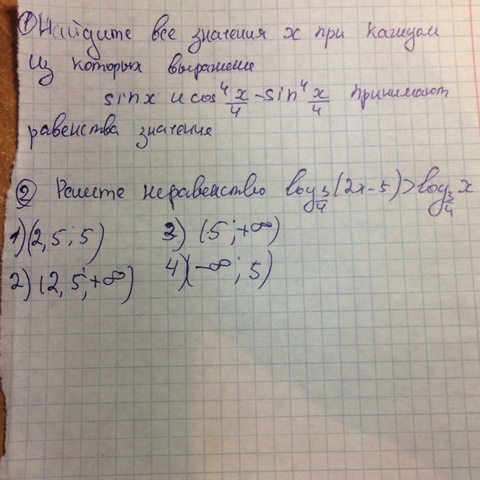 ① Найдите все значения x при каждом
из которых выражение
sinx и cos⁴ x/4 - sin⁴ x/4 принимают
равенства значения
② Решите неравенство log 3/4 (2x-5) > log 3/4 x
1) (2,5; 5) 3) (5; +∞)
2) (2,5; +∞) 4) (-∞; 5)